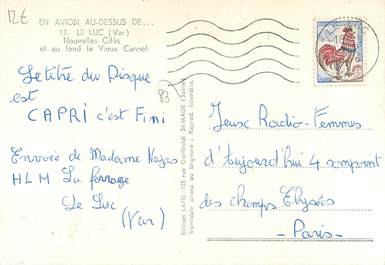 12€
EN AVION AU-DESSUS DE...
13. LE LUC (Var)
Nouvelles Cités
et au fond le Vieux Cannet
Le titre du Disque
est
CAPRI c'est Fini
Envoie de Madame
HLM La ferrage
Le Luc
(Var)
83
Editions LAPIE - 123 rue Garibaldi, St-MAUR (Seine)
Véritable photo au bromure - Reprod. interdite.
Jeux Radio-Femmes
d'aujourd'hui 4 rompont
des champs Elysées
- Paris -